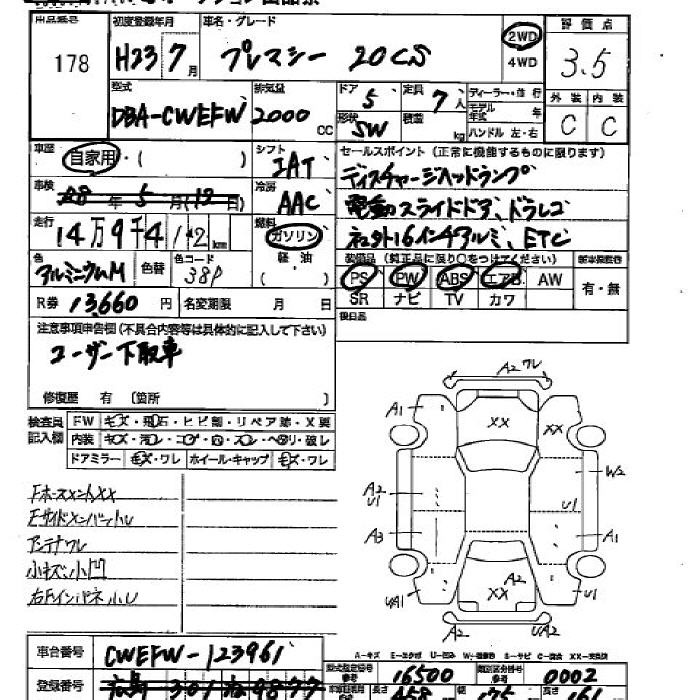 出品番号 初度登録年月 車名・グレード 評価点
178 H23 7月 プレマシー 20CS 2WD 4WD 3.5
型式 排気量 ドア 定員 ディーラー・並行 外装 内装
DBA-CWEFW 2000cc 5 7人 モデル年式 年 C C
形状 SW 積載 kg ハンドル 左・右
車歴 自家用・( ) シフト IAT セールスポイント(正常に機能するものに限ります)
ディスチャージヘッドランプ
車検 28年5月(12日) 冷房 AAC 電動スライドドア、ドラレコ
走行 14万9千4 1 2 km 燃料 ガソリン 軽油 ( ) 社外16インチアルミ、ETC
色 アルミニウムM 色替 色コード 38P 装備品(純正品に限り○をつけてください) 新車保証書
PS PW ABS エアB AW 有・無
R券 13,660円 名変期限 月 日 SR ナビ TV カワ
注意事項申告欄(不具合内容等は具体的に記入して下さい) 後日品
ユーザー下取車
修復歴 有 〔箇所 〕
検査員記入欄 FW キズ・飛石・ヒビ割・リペア跡・X要
内装 キズ・汚レ・コゲ・穴・スレ・ヘタリ・破レ
ドアミラー キズ・ワレ ホイール・キャップ キズ・ワレ
Fホースメントxx
Fサイドメンバー小レ
アンテナワレ
小キズ、小凹
右Fインパネ小レ
A2ワレ
A1 XX XX
W2
A2 U1 U1
A3 A1
UA1 A2 U1
A2 UA2
A-キズ E-エクボ U-凹み W-補修跡 S-サビ C-腐食 XX-交換済
車台番号 CWEFW-123961 型式指定番号 参考 16500 類別区分番号 参考 0002
登録番号 広島 301 ね 9877 長さ 458 幅 175 高さ 161